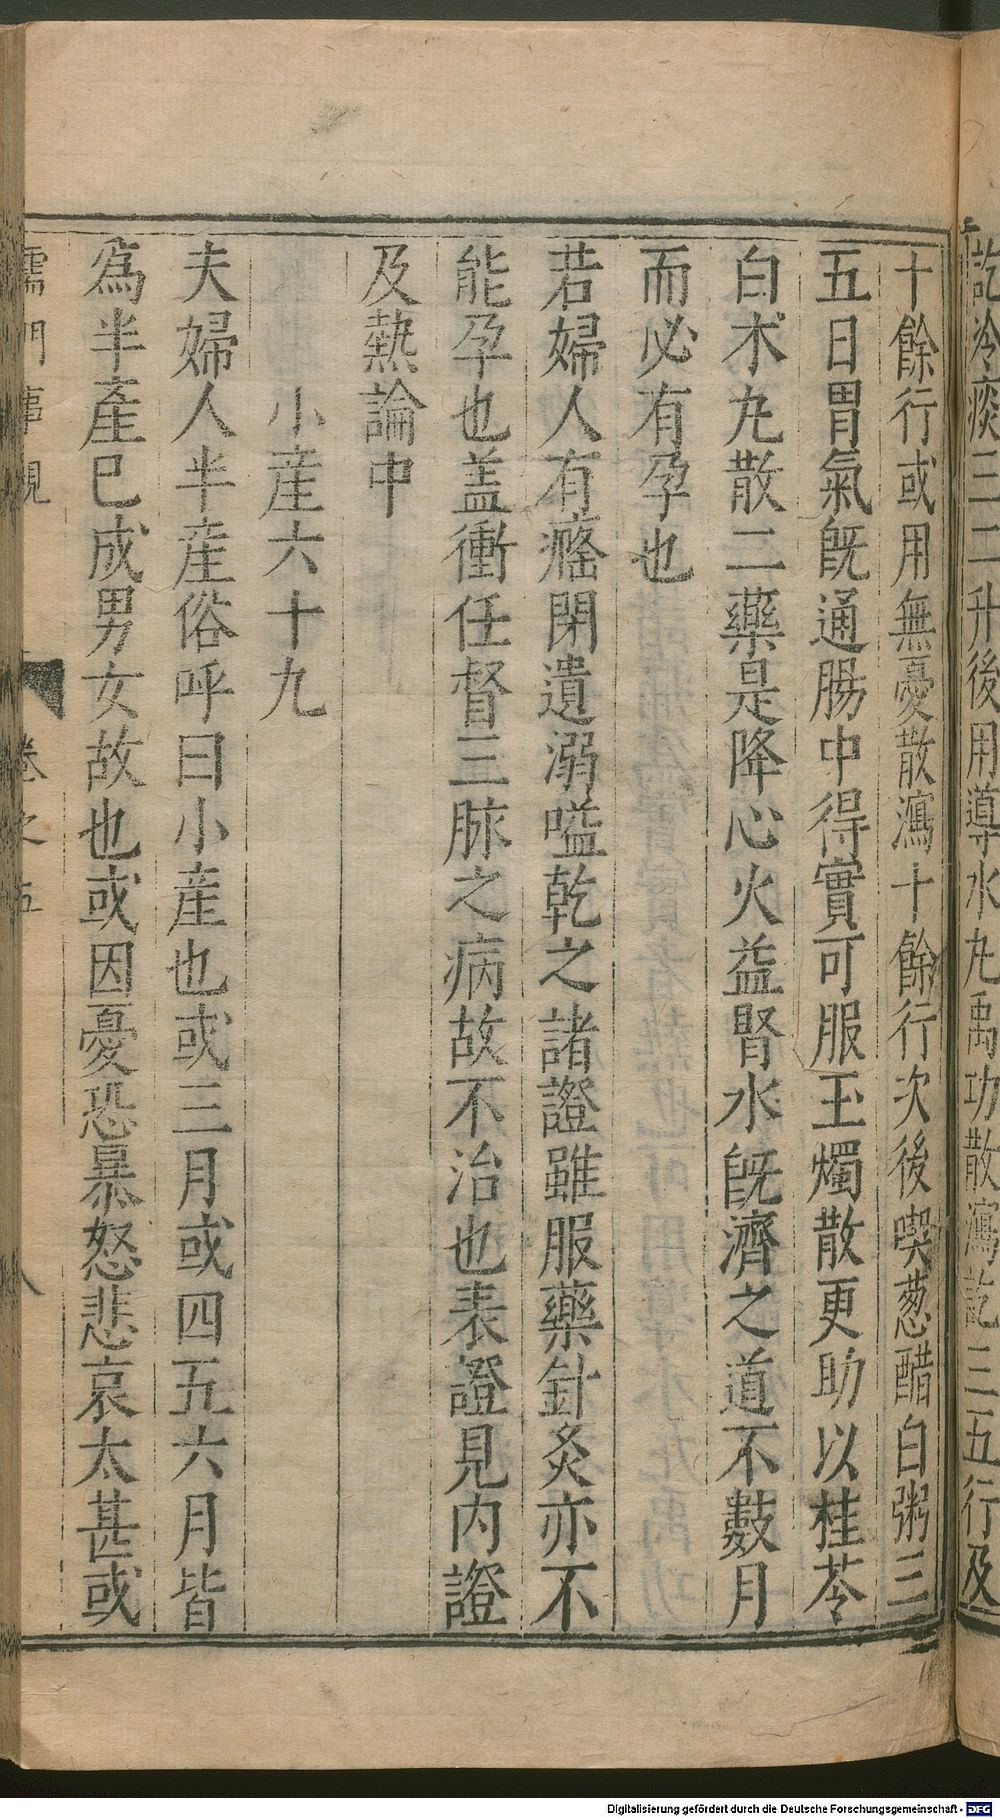 訖冷痰三二升後用導水丸禹功散瀉訖三五行及
十餘行或用無憂散瀉十餘行次後喫葱醋白粥三
五日胃氣既通腸中得實可服玉燭散更助以桂苓
白朮丸散二藥是降心火益腎水既濟之道不數月
而必有孕也
若婦人有癃閉遺溺嗌乾之諸證雖服藥針灸亦不
能孕也盖衝任督三脉之病故不治也表證見内證
及熱論中
小産六十九
夫婦人半産俗呼曰小産也或三月或四五六月皆
爲半產已成男女故也或因憂恐暴怒悲哀太甚或
儒門事親 卷之五 八
Digitalisierung gefördert durch die Deutsche Forschungsgemeinschaft - DFG